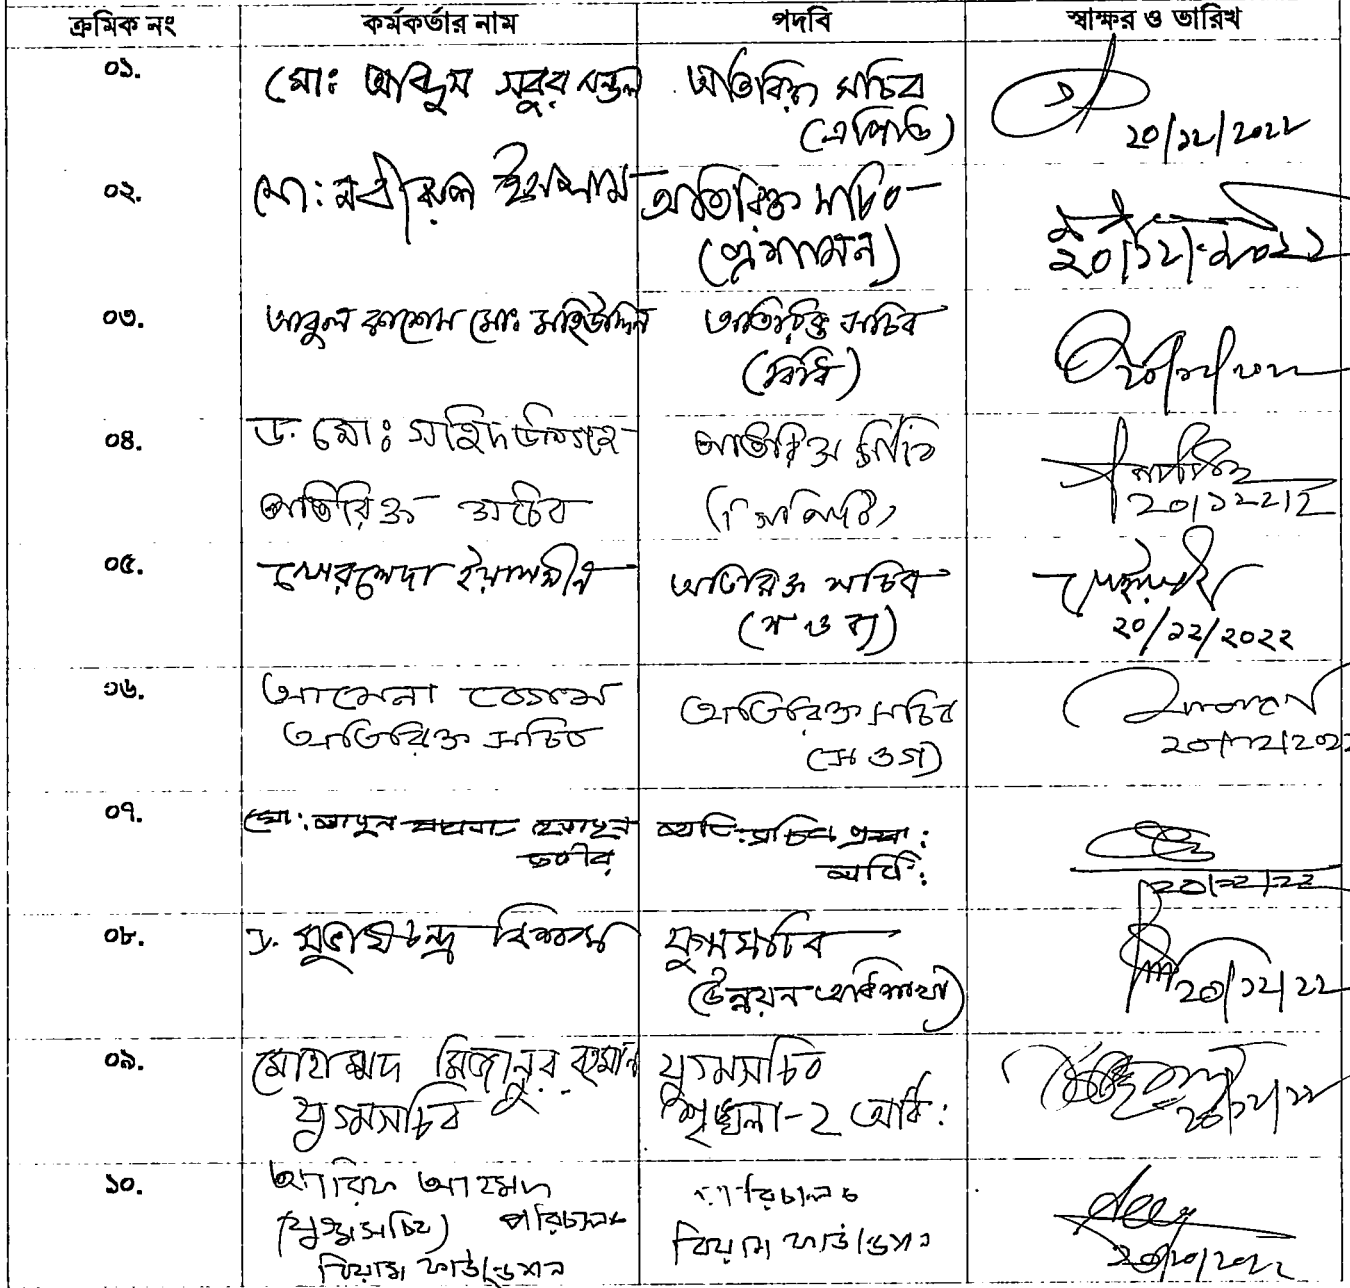 ক্রমিক নং কর্মকর্তার নাম পদবি স্বাক্ষর ও তারিখ
০১. মোঃ আব্দুস সবুর মন্ডল অতিরিক্ত সচিব
(এপিডি) ২০/১২/২০২২
০২. মো: নবীরুল ইসলাম অতিরিক্ত সচিব
(প্রশাসন) ২০/১২/২০২২
০৩. আবুল কাশেম মোঃ মহিউদ্দিন অতিরিক্ত সচিব
(বিধি) ২০/১২/২০২২
০৪. ড. মোঃ সহিদউল্যাহ অতিরিক্ত সচিব
অতিরিক্ত সচিব
০৫. ইয়াসমীন অতিরিক্ত সচিব
(স ও ব্য) ২০/১২/২০২২
০৬. আমেনা বেগম অতিরিক্ত সচিব
অতিরিক্ত সচিব (স ও গ) ২০/১২/২০২২
০৭. মো:
২০/১২/২২
০৮. ড. সুভাষ চন্দ্র বিশ্বাস যুগ্মসচিব
(উন্নয়ন অধিশাখা) ২০/১২/২২
০৯. মোহাম্মদ মিজানুর রহমান যুগ্মসচিব
যুগ্মসচিব শৃঙ্খলা-২ অধি: ২০/১২/২২
১০. আরিফ আহমদ পরিচালক
(যুগ্মসচিব) পরিচালক বিয়াম ফাউন্ডেশন
বিয়াম ফাউন্ডেশন